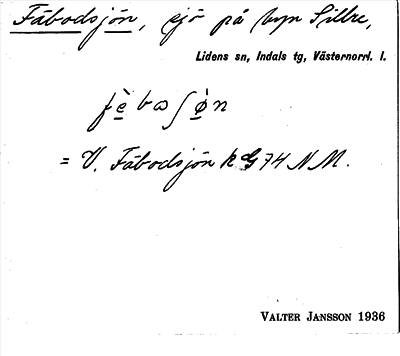 Fäbodsjön, sjö på byn Sillre,
Lidens sn, Indals tg, Västernorrl. l.
fè̱bωʃø̱̀n
= V. Fäbodsjön k G74 NM.
VALTER JANSSON 1936